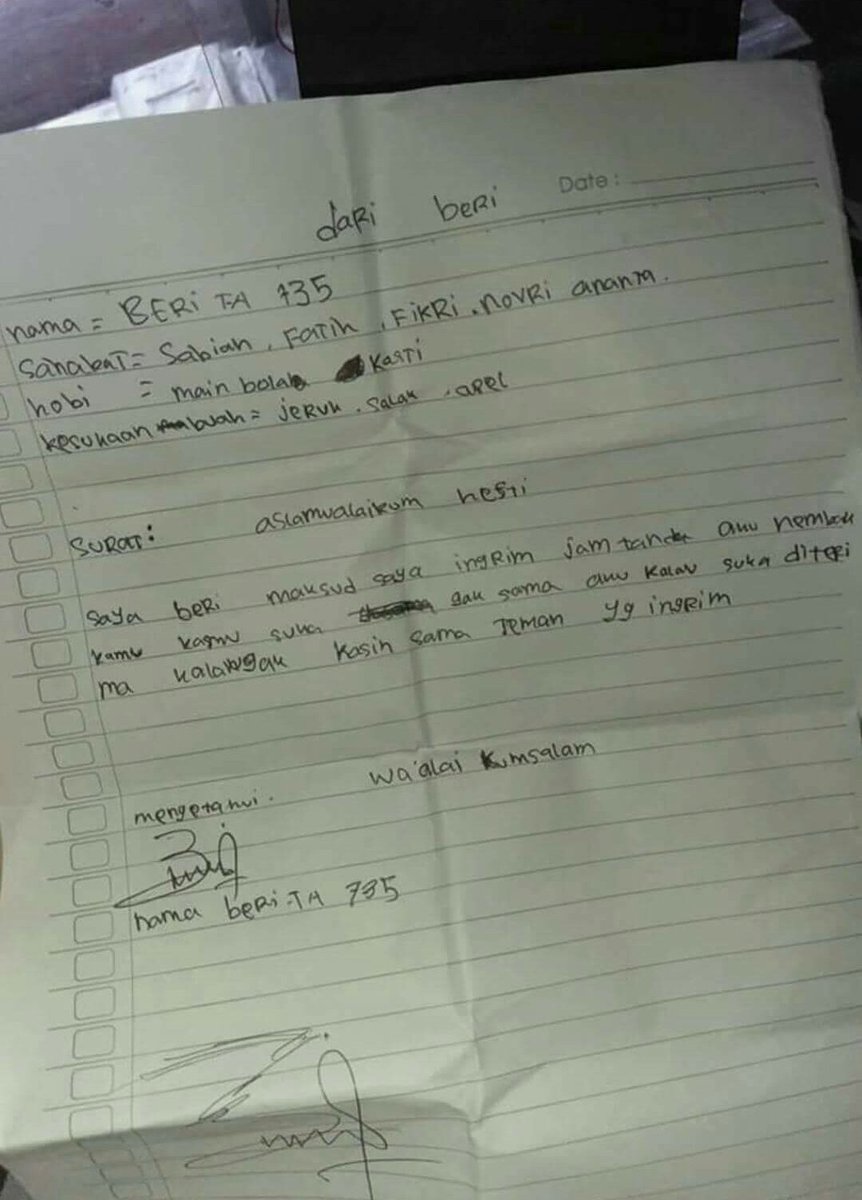 Date:
dari beri
nama = BERi TA 735
sahabat = Sabiah, Fatih, Fikri, Novri ananta.
hobi = main bola kasti
kesukaan buah = jeruk, salak, apel
SURAT: aslamualaikum hesti
Saya beri maksud saya ingrim jam tandr aku nembak
kamu kamu suka gak sama aku kalau suka diteri
ma kalau gak kasih sama teman yg ingrim
wa'alai kumsalam
mengetahui.
nama beri-TA 735